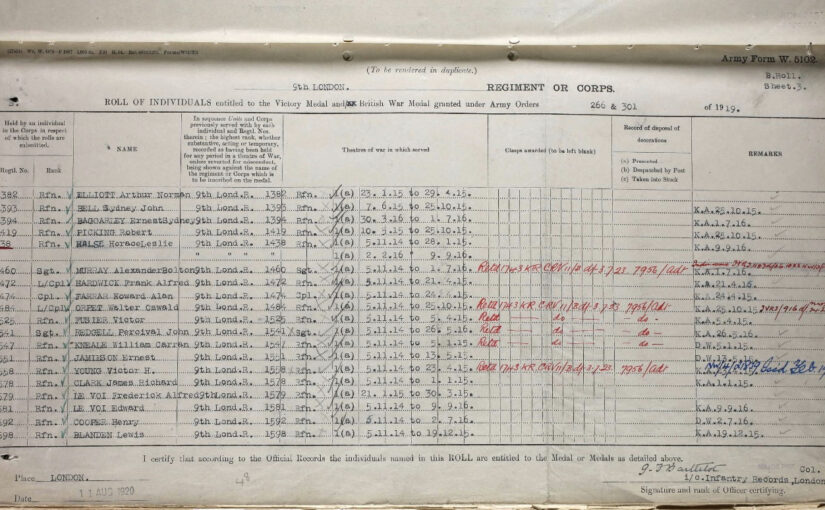 Army Form W. 5102.
(To be rendered in duplicate.)
B.Roll.
Sheet.3.
9th LONDON. REGIMENT OR CORPS.
ROLL OF INDIVIDUALS entitled to the Victory Medal and British War Medal granted under Army Orders 266 & 301 of 1919.
Held by an individual in the Corps in respect of which the rolls are submitted.
Regtl. No. Rank
NAME
In sequence Units and Corps previously served with by each individual and Regtl. Nos. therein; the highest rank, whether substantive, acting or temporary, recorded as having been held for any period in a theatre of War, unless reverted for misconduct, being shown against the name of the regiment or Corps which is to be inscribed on the medal.
Theatres of war in which served
Clasps awarded (to be left blank)
Record of disposal of decorations
(a) Presented
(b) Despatched by Post
(c) Taken into Stock
REMARKS
382 Rfn. ELLIOTT Arthur Norman 9th Lond.R. 1382 Rfn. 1(a) 23. 1.15 to 29. 4.15.
393 Rfn. BELL Sydney John 9th Lond.R. 1393 Rfn. 1(a) 7. 6.15 to 25.10.15. K.A.25.10.15.
394 Rfn. BAGGARLEY ErnestSydney 9th Lond.R. 1394 Rfn. 1(a) 30. 3.16 to 1. 7.16. K.A.1.7.16.
419 Rfn. PICKING Robert 9th Lond.R. 1419 Rfn. 1(a) 10. 5.15 to 25.10.15. K.A.25.10.15.
438 Rfn. HALSE HoraceLeslie 9th Lond.R. 1438 Rfn. 1(a) 5.11.14 to 28. 1.15. K.A.9.9.16.
" " " " 1(a) 2. 2.16 " 9. 9.16.
460 Sgt. MURRAY AlexanderBolton 9th Lond.R. 1460 Sgt. 1(a) 5.11.14 to 1. 7.16. Retd 1743 KR CRV 11/B df 3.7.23 7956/Adt K.A.1.7.16.
472 L/Cpl HARDWICK Frank Alfred 9th Lond.R. 1472 Rfn. 1(a) 5.11.14 to 21.4.15. K.A.21.4.16.
474 Cpl. FARRAR Howard Alan 9th Lond.R. 1474 Cpl. 1(a) 5.11.14 to 24. 4.15. K.A.24.4.15.
484 L/Cpl ORPET Walter Oswald 9th Lond.R. 1484 Rfn. 1(a) 5.11.14 to 25.10.15. Retd 1743 KR CRV 11/B df 3.7.23 7956/Adt K.A.25.10.15
525 Rfn. FUSIER Victor 9th Lond.R. 1525 Rfn. 1(a) 5.11.14 to 5.4.15. Retd do do K.A.5.4.15.
541 Sgt. REDGELL Percival John 9th Lond.R. 1541 Sgt. 1(a) 5.11.14 to 26. 5.16. Retd do do K.A.26.5.16
547 Rfn. KNEALE William Carran 9th Lond.R. 1547 Rfn. 1(a) 5.11.14 to 5.1.15. Retd do do D.W.5.1.15.
551 Rfn. JAMISON Ernest 9th Lond.R. 1551 Rfn. 1(a) 5.11.14 to 13. 5.15. D.W.13.5.15.
558 Rfn. YOUNG Victor H. 9th Lond.R. 1558 Rfn. 1(a) 5.11.14 to 23. 4.15. Retd 1743 KR CRV 11/B df 3.7.23 7956/Adt
578 Rfn. CLARK James Richard 9th Lond.R. 1578 Rfn. 1(a) 5.11.14 to 1. 1.15. K.A.1.1.15.
579 Rfn. LE VOI Frederick Alfred 9thLond.R. 1579 Rfn. 1(a) 21. 1.15 to 30. 3.15.
581 Rfn. LE VOI Edward 9th Lond.R. 1581 Rfn. 1(a) 5.11.14 to 9. 9.16. K.A.9.9.16.
592 Rfn. COOPER Henry 9th Lond.R. 1592 Rfn. 1(a) 5.11.14 to 2. 7.16. D.W.2.7.16.
598 Rfn. BLANDEN Lewis 9th Lond.R. 1598 Rfn. 1(a) 5.11.14 to 19.12.15. K.A.19.12.15.
I certify that according to the Official Records the individuals named in this ROLL are entitled to the Medal or Medals as detailed above.
Place LONDON.
48
Col.
i/c.Infantry Records,London
Date 11 AUG 1920
Signature and rank of Officer certifying.